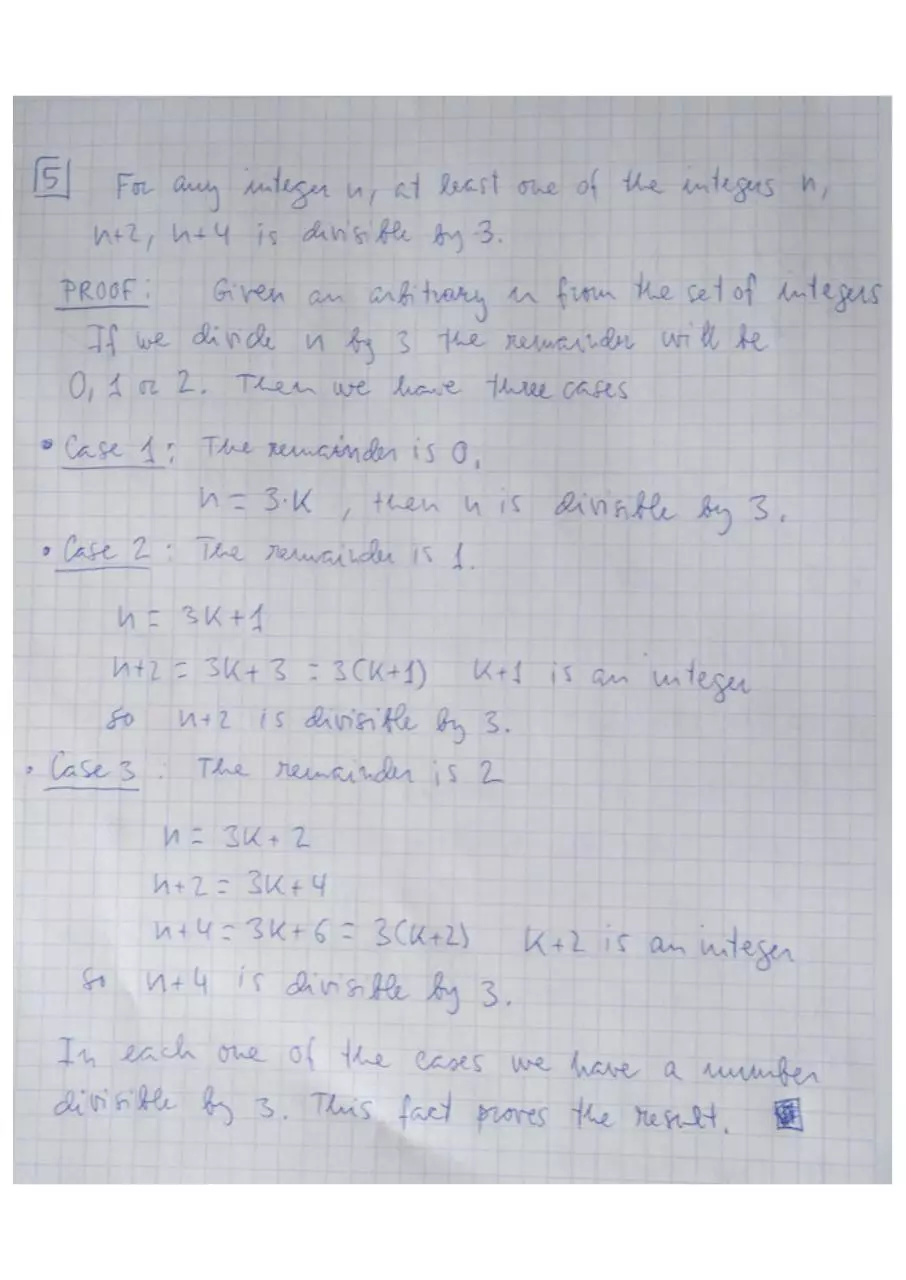 5 For any integer n, at least one of the integers n,
n+2, n+4 is divisible by 3.
PROOF: Given an arbitrary n from the set of integers
If we divide n by 3 the remainder will be
0, 1 or 2. Then we have three cases
• Case 1: The remainder is 0.
n = 3·K, then n is divisible by 3.
• Case 2: The remainder is 1.
n = 3K+1
n+2 = 3K+3 = 3(K+1) K+1 is an integer
so n+2 is divisible by 3.
• Case 3: The remainder is 2
n = 3K+2
n+2 = 3K+4
n+4 = 3K+6 = 3(K+2) K+2 is an integer
so n+4 is divisible by 3.
In each one of the cases we have a number
divisible by 3. This fact proves the result.